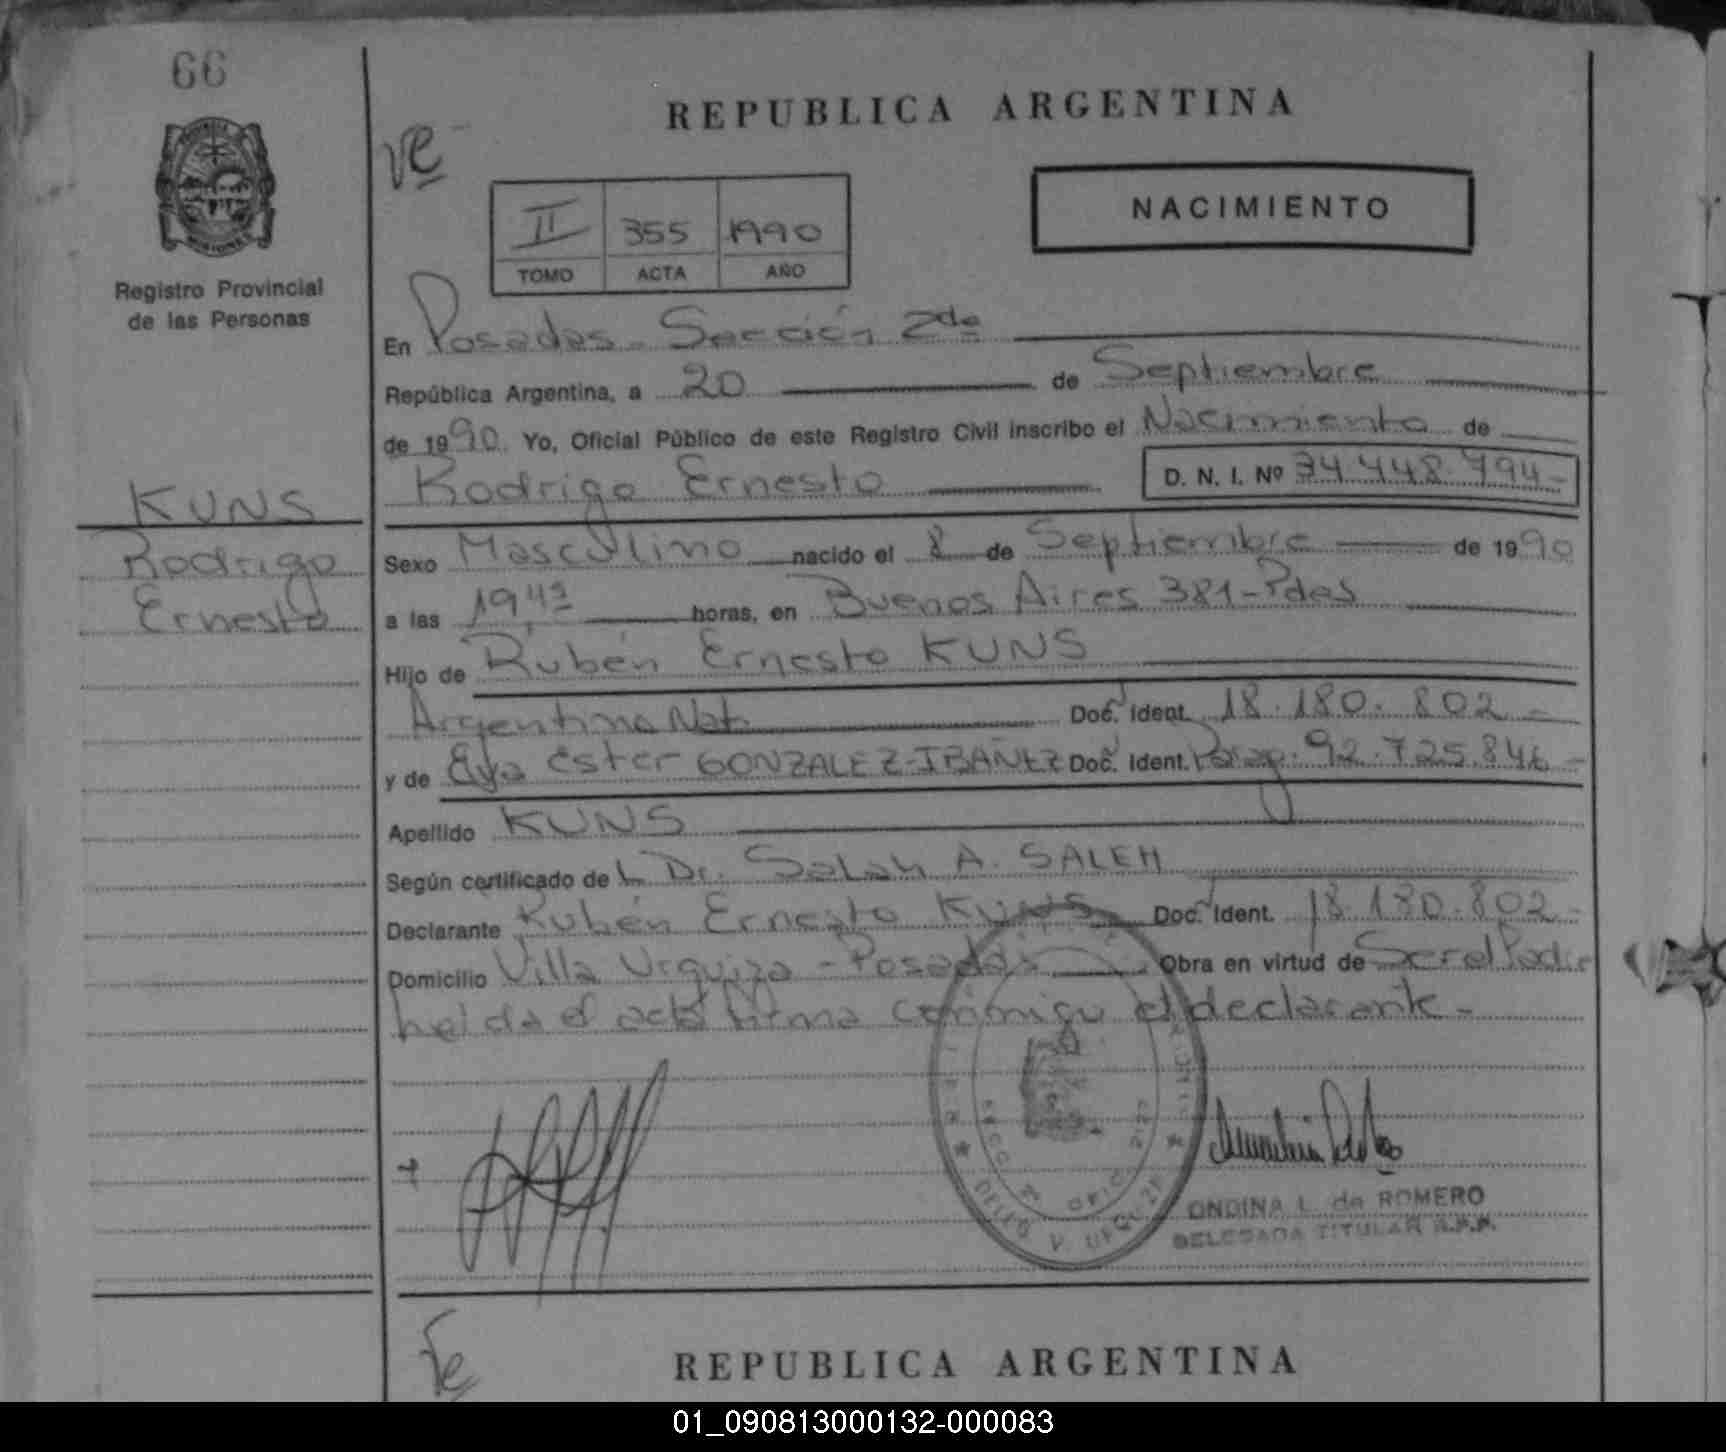 66
REPUBLICA ARGENTINA
ve
NACIMIENTO
II 355 1990
TOMO ACTA AÑO
Registro Provincial
de las Personas
En Posadas - Sección 2da
República Argentina, a 20 de Septiembre
de 1990. Yo, Oficial Público de este Registro Civil inscribo el Nacimiento de
Rodrigo Ernesto D. N. I. Nº 34.448.794-
KUNS
Rodrigo
Ernesto
Sexo Masculino nacido el 8 de Septiembre de 1990
a las horas, en Buenos Aires 381-Pdas
Hijo de Rubén Ernesto KUNS
Argentino Nat. Doc. Ident. 18.180.802-
y de Ester GONZALEZ-IBAÑEZ Doc. Ident. 92.725.846-
Apellido KUNS
Según certificado del Dr. Salah A. SALEH
Declarante Rubén Ernesto KUNS Doc. Ident. 18.180.802-
Domicilio Villa Urquiza - Posadas Obra en virtud de Ser el Padre
leída el acta firma conmigo el declarante.-
V. URQUIZA
ONDINA L. de ROMERO
DELEGADA TITULAR R.P.P.
Fe
REPUBLICA ARGENTINA
01_090813000132-000083